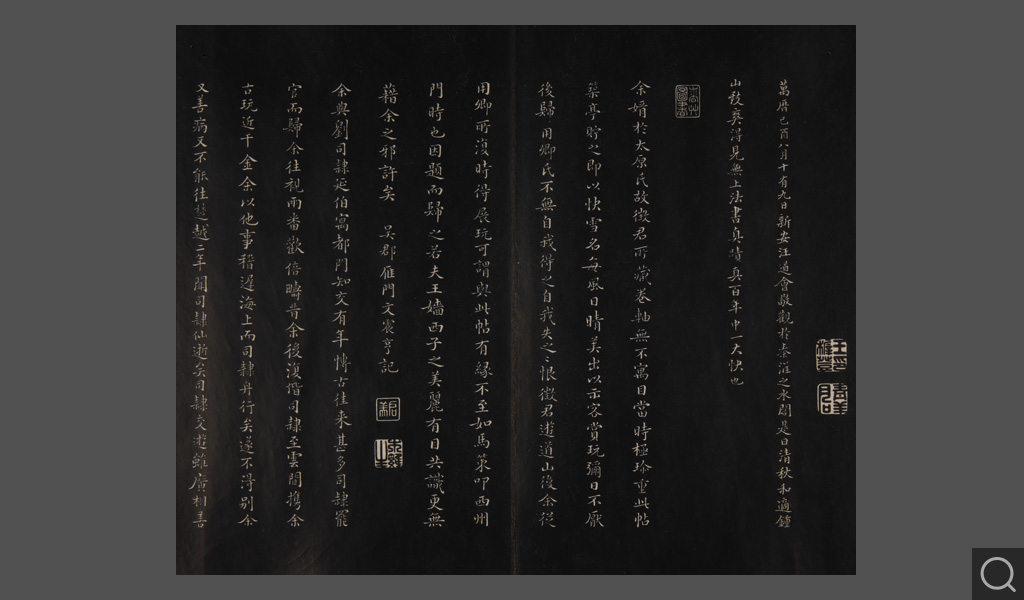 萬曆己酉八月十有九日新安汪道會敬觀於秦淮之水閣是日清秋和適鍾
山致爽得見無上法書真蹟真百年中一大快也
余婿於太原氏故徵君所藏卷軸無不寓目當時極珍重此帖
築亭貯之即以快雪名每風日晴美出以示客賞玩彌日不厭
後歸用卿氏不無自我得之自我失之之恨徵君遊道山後余從
用卿所復時得展玩可謂與此帖有緣不至如馬策叩西州
門時也因題而歸之若夫王嬙西子之美麗有目共識更無
藉余之邪許矣 吳郡雁門文震亨記
余與劉司隸延伯寓都門知交有年博古往來甚多司隸罷
官而歸余往視兩番歡倍疇昔余後復偕司隸至雲間攜余
古玩近千金余以他事稽遲海上而司隸舟行矣遂不得別余
又善病又不能往楚越二年聞司隸仙逝矣司隸交遊雖廣相善